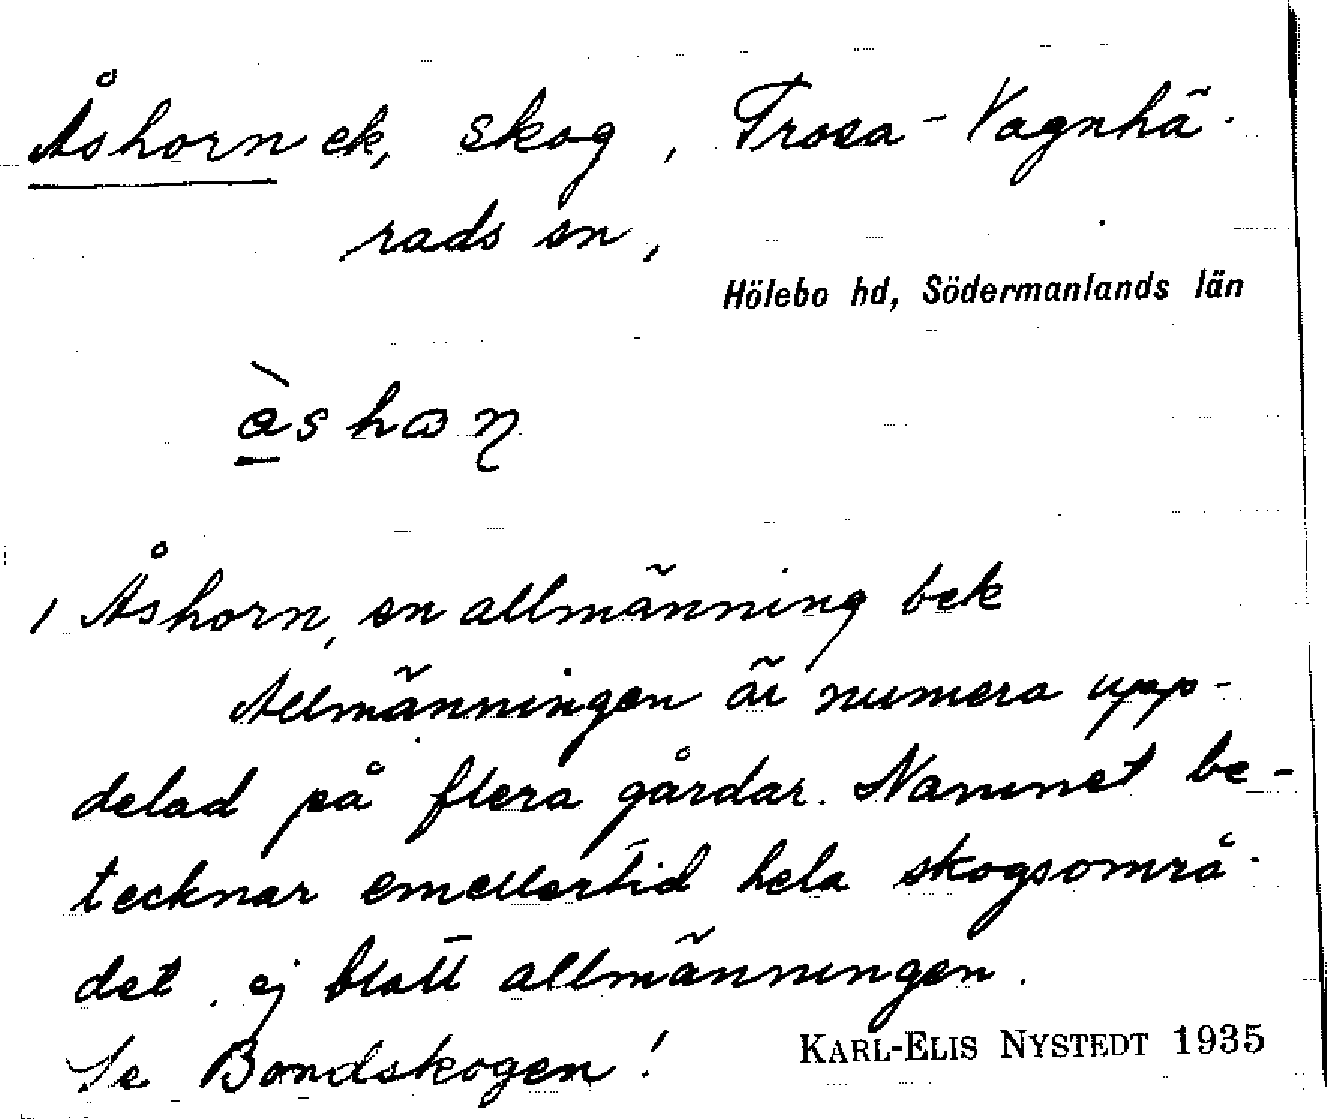 Åshorn ek, skog, Trosa-Vagnhä-
rads sn,
Hölebo hd, Södermanlands län
1 Åshorn, en allmänning bek
Allmänningen är numera upp-
delad på flera gårdar. Namnet be-
tecknar emellertid hela skogsområ-
det, ej blott allmänningen.
Se Bondskogen!
KARL-ELIS NYSTEDT 1935